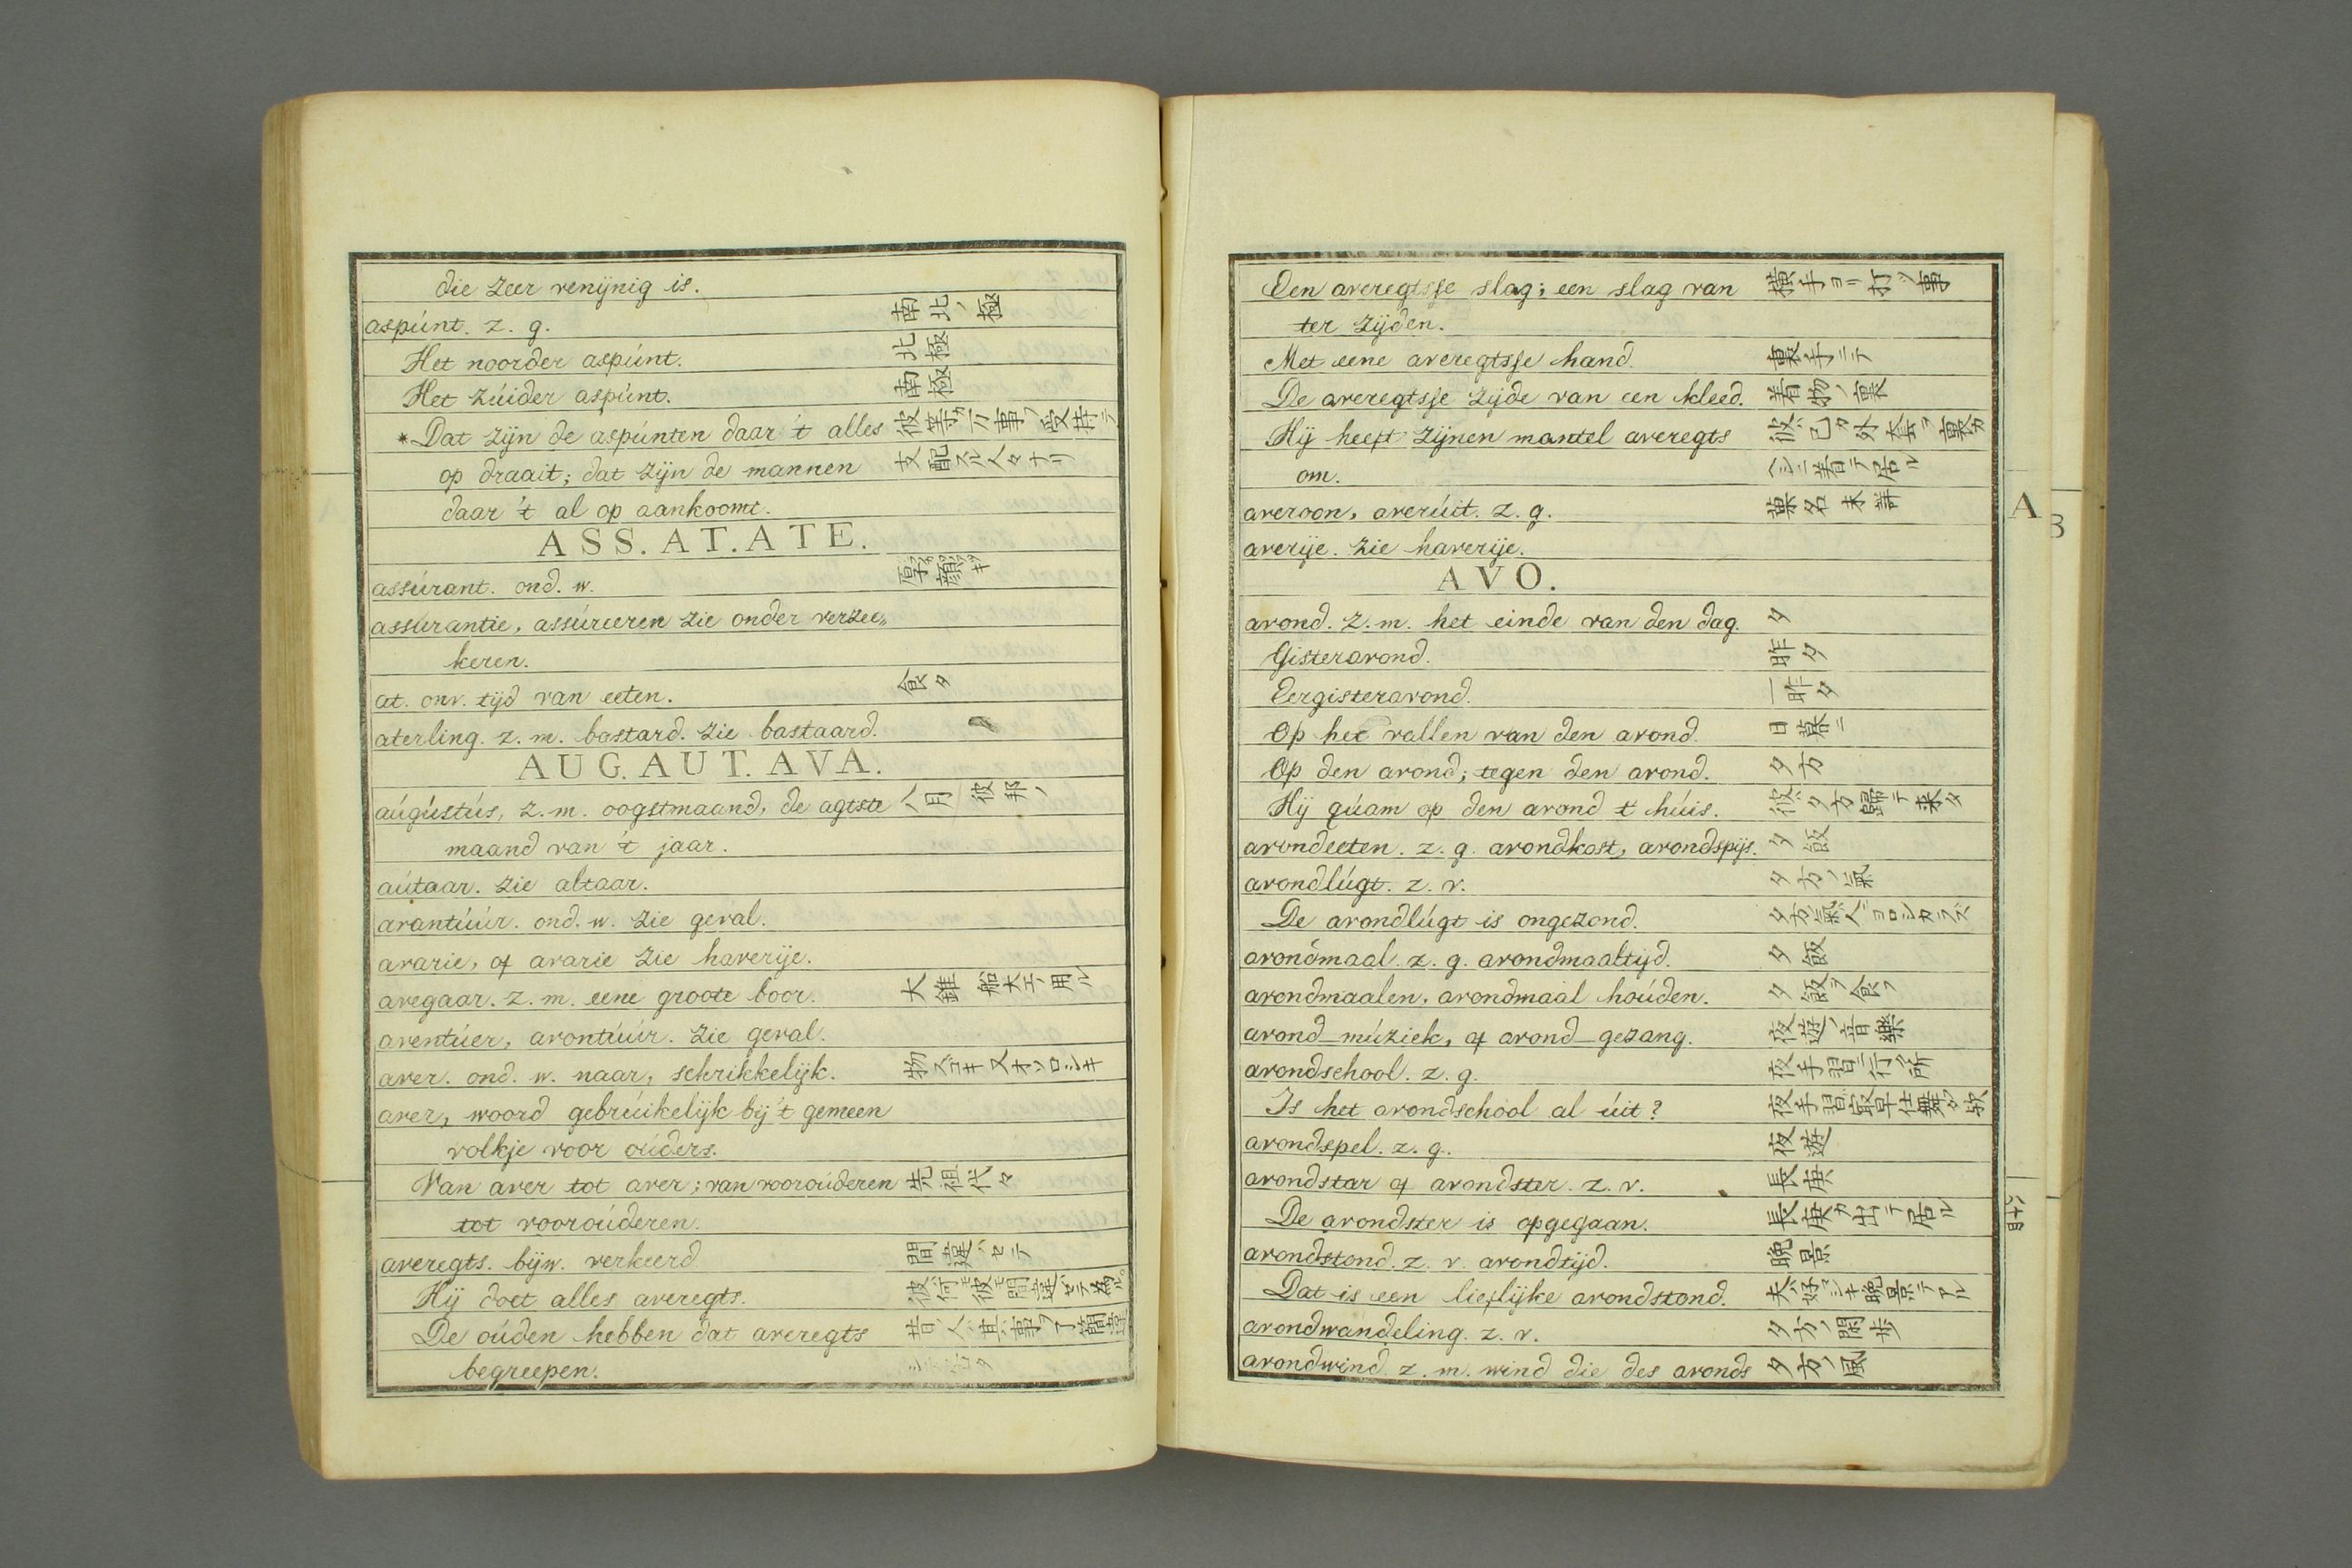 die zeer venijnig is.
aspúnt. z. g. 南北ノ極
Het noorder aspúnt. 北極
Het zúider aspúnt. 南極
*Dat zijn de aspúnten daar 't alles
op draait; dat zijn de mannen 支配スル人々ナリ
daar 't al op aankoomt.
ASS. AT. ATE.
assúrant. ond. w. 厚顔
assúrantie, assúreeren zie onder verzee„
keren.
at. onv. tijd van eeten. 食タ
aterling. z. m. bastard. zie bastaard.
AUG. AUT. AVA.
aúgústús, z. m. oogstmaand, de agtste 八月 彼邦ノ
maand van 't jaar.
aútaar. zie altaar.
avantúúr. ond. w. zie geval.
avarie, of avarie zie haverije.
avegaar. z. m. eene groote boor. 大錐 船大工ノ用ル
aventúer, avontúúr. zie geval.
aver. ond. w. naar, schrikkelijk. 物スゴキ 又オソロシキ
aver, woord gebrúikelijk bij 't gemeen
volkje voor oúders.
Van aver tot aver; van vooroúderen 先祖代々
tot vooroúderen.
averegts. bijw. verkeerd. 間違ハセテ
Hij doet alles averegts.
De oúden hebben dat averegts
begreepen.
Een averegtsse slag; een slag van 横手ヨリ打ツ事
ter zijden.
Met eene averegtsse hand. 裏手ニテ
De averegtsse zijde van een kleed. 着物ノ裏
Hij heeft zijnen mantel averegts 彼ハ己カ外套ヲ裏カ
om. ヘシニ着テ居ル
averoon, averúit. z. g. 菓名未詳
averije. zie haverije.
AVO.
avond. z. m. het einde van den dag. 夕
Gisteravond. 昨夕
Eergisteravond. 一昨夕
Op het vallen van den avond. 日暮ニ
Op den avond; tegen den avond. 夕方
Hij qúam op den avond t húis. 彼ハ夕方歸テ来タ
avondeeten. z. g. avondkost, avondspijs. 夕飯
avondlúgt. z. v. 夕方ノ氣
De avondlúgt is ongezond. 夕方ノ氣ハヨロシカラズ
avondmaal. z. g. avondmaaltijd. 夕飯
avondmaalen, avondmaal hoúden. 夕飯ヲ食フ
avond-múziek, of avond-gezang. 夜遊ノ音樂
avondschool. z. g. 夜手習ニ行所
Is het avondschool al úit? 夜手習ハ最早仕舞タ歟
avondspel. z. g. 夜遊
avondstar of avondster. z. v. 長庚
De avondster is opgegaan. 長庚カ出テ居ル
avondstond. z. v. avondtijd. 晩景
Dat is een lieflijke avondstond. 夫ハ好シキ晩景テアル
avondwandeling. z. v. 夕方ノ閑歩
avondwind. z. m. wind die des avonds 夕方ノ風
A
B